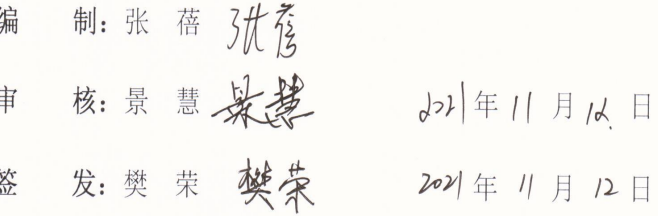 编 制: 张 蓓 张蓓
审 核: 景 慧 景慧 2021年11月12日
签 发: 樊 荣 樊荣 2021年11月12日